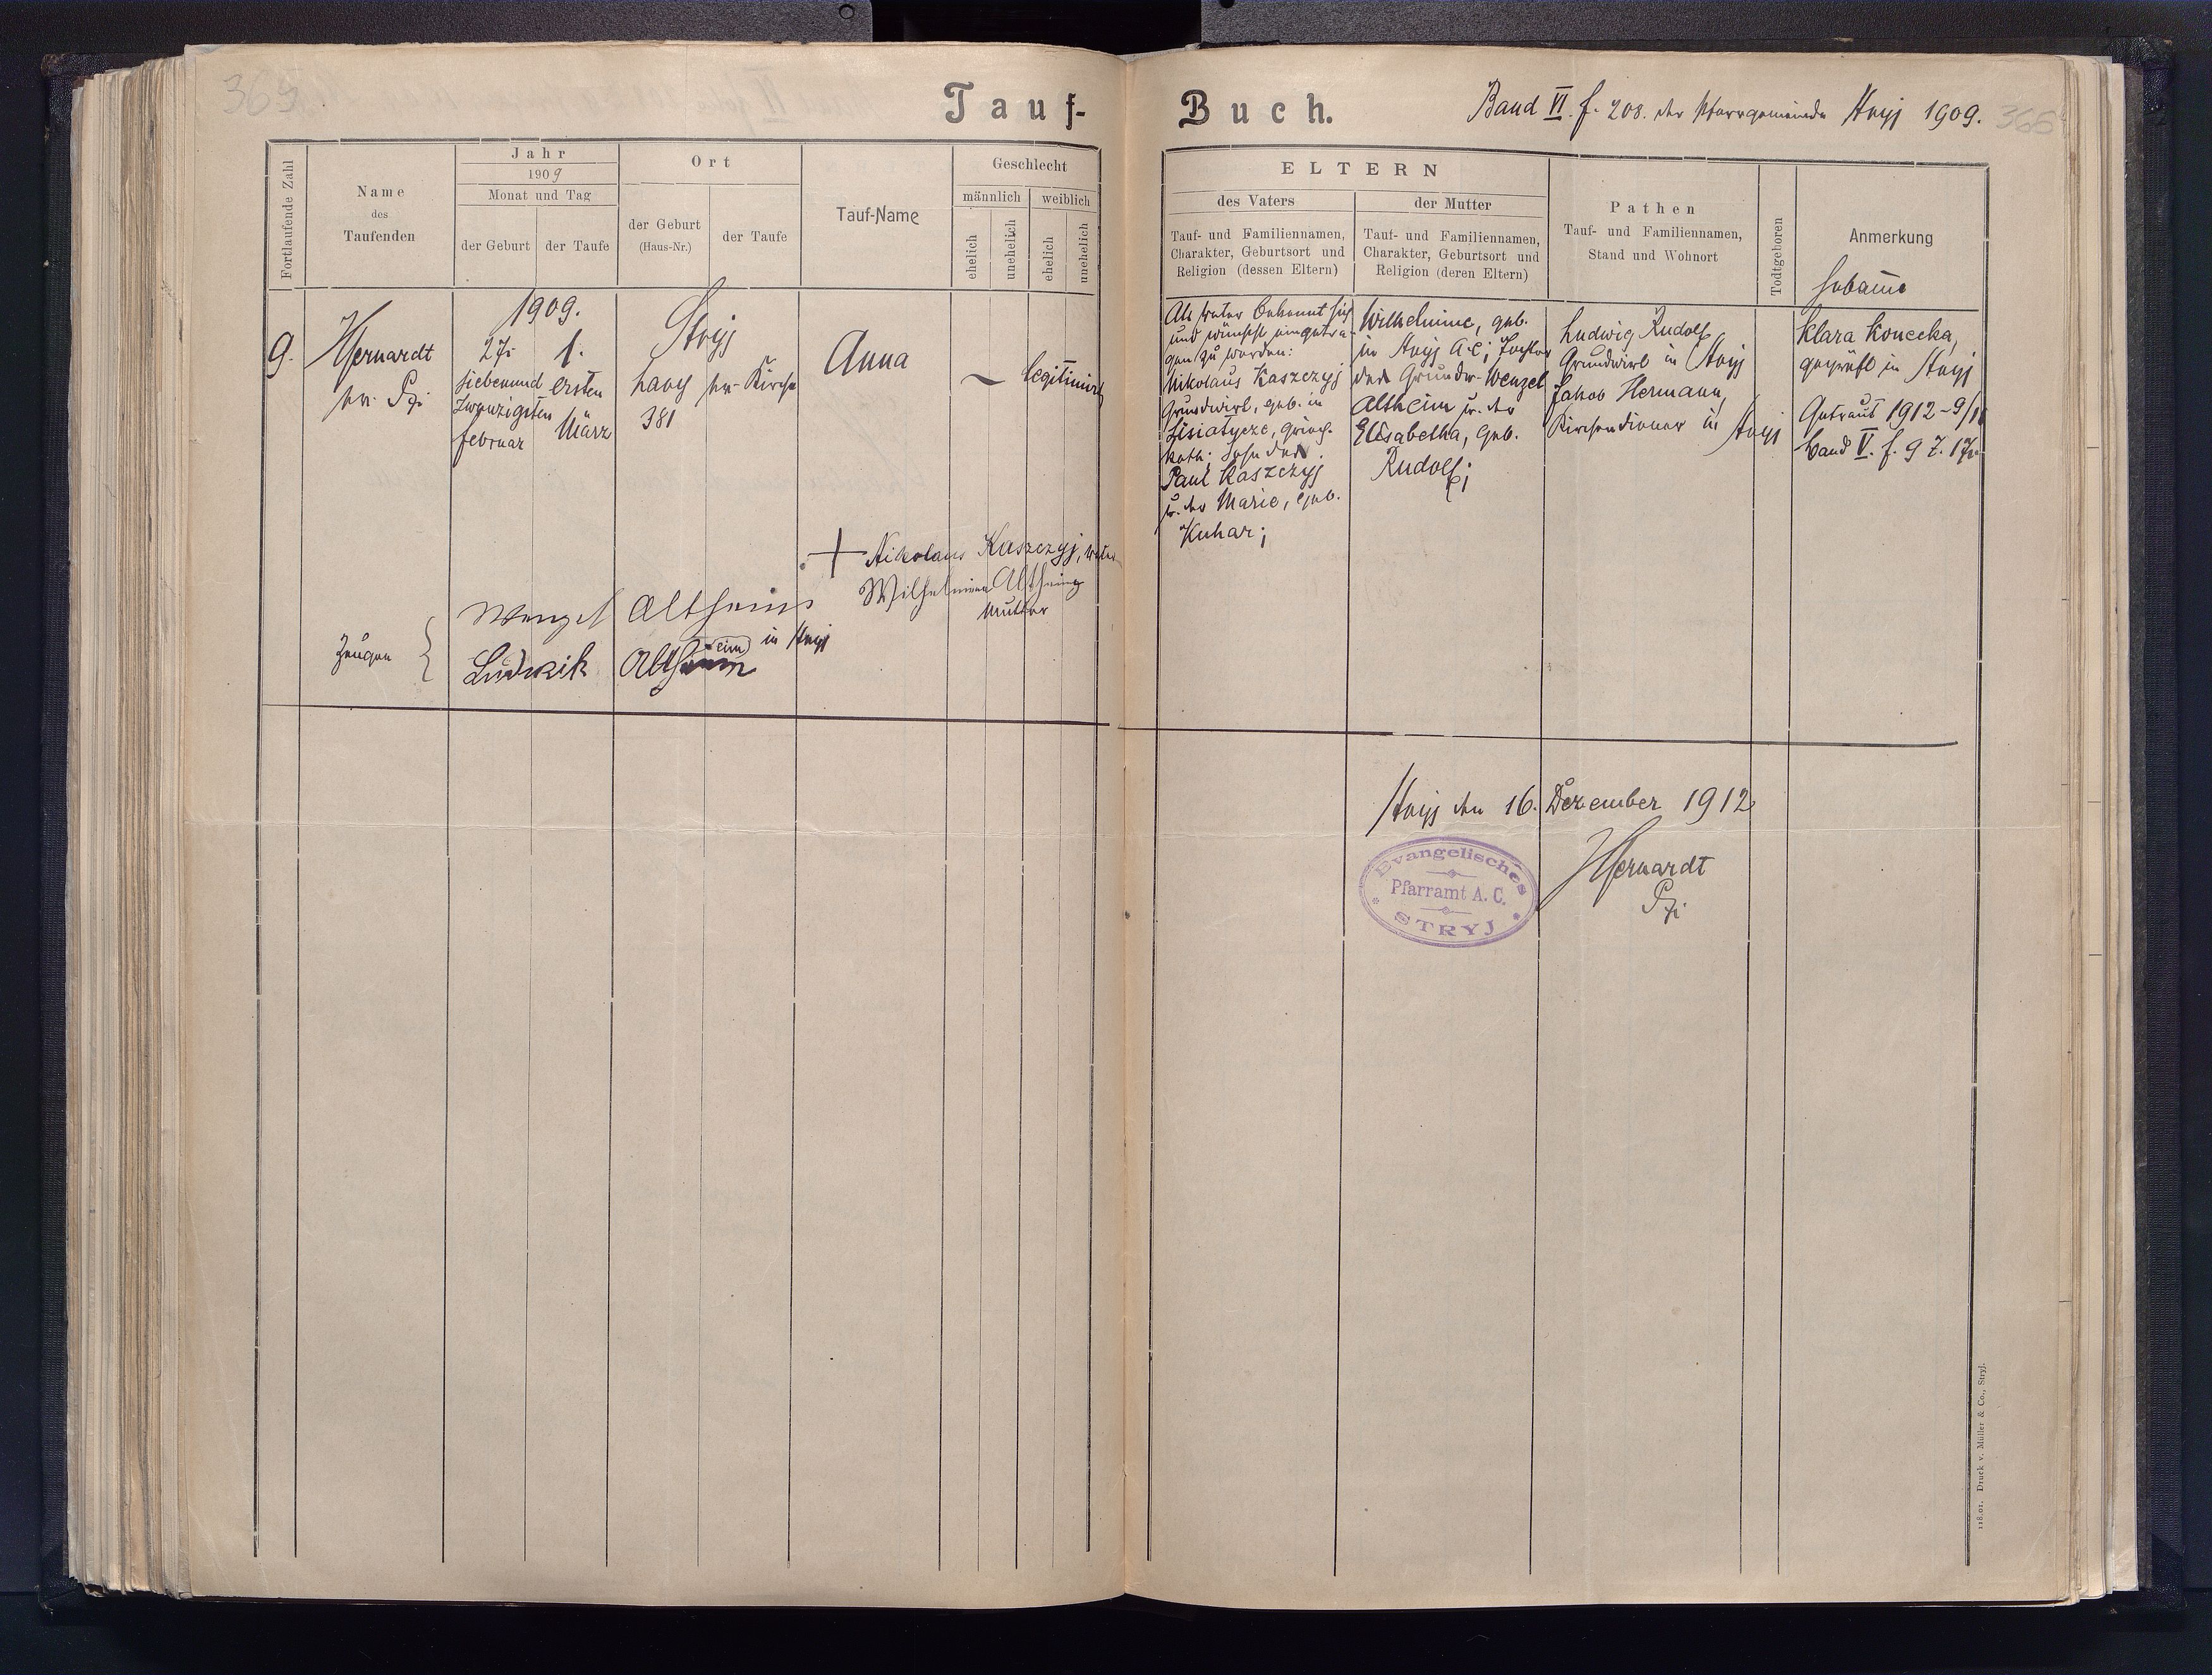 369
Tauf-
Buch.
Band VI. f. 208. der Pfarrgemeinde Stryj 1909.
366
Fortlaufende Zahl
Name
des
Taufenden
Jahr
1909
Monat und Tag
der Geburt
der Taufe
Ort
der Geburt
(Haus-Nr.)
der Taufe
Tauf-Name
Geschlecht
männlich
weiblich
ehelich
unehelich
ehelich
unehelich
ELTERN
des Vaters
Tauf- und Familiennamen,
Charakter, Geburtsort und
Religion (dessen Eltern)
der Mutter
Tauf- und Familiennamen,
Charakter, Geburtsort und
Religion (deren Eltern)
Pathen
Tauf- und Familiennamen,
Stand und Wohnort
Todtgeboren
Anmerkung
Hebamme
9.
1909.
27.
siebenund
zwanzigsten
Februar
1.
ersten
März
Stryj
Lany
381
Kirche
Anna
legitimirt
Als Vater bekennt sich
und wünscht eingetra-
gen zu werden:
Nikolaus Kaszczyj
Grundwirt, geb. in
Lisiatycze, griech.
kath; Sohn des
Paul Kaszczyj
u. der Marie, geb.
Kuhar;
Wilhelmine, geb.
in Stryj A.C; Tochter
des Grundw. Wenzel
Altheim u. der
Elisabetha, geb.
Rudolf;
Ludwig Rudolf
Grundwirt in Stryj
Jakob Hermann,
Kirchendiener in Stryj
Klara Konecka,
geprüft in Stryj
Getraut 1912-9/11
Band V. f. 97.
+ Nikolaus Kaszczyj, Vater
Mutter
Zeugen {
Wenzel Altheim
Ludwik Altheim
in Stryj
Stryj den 16. Dezember 1912
Evangelisches
Pfarramt A. C.
STRYJ
118.01. Druck v. Müller & Co., Stryj.